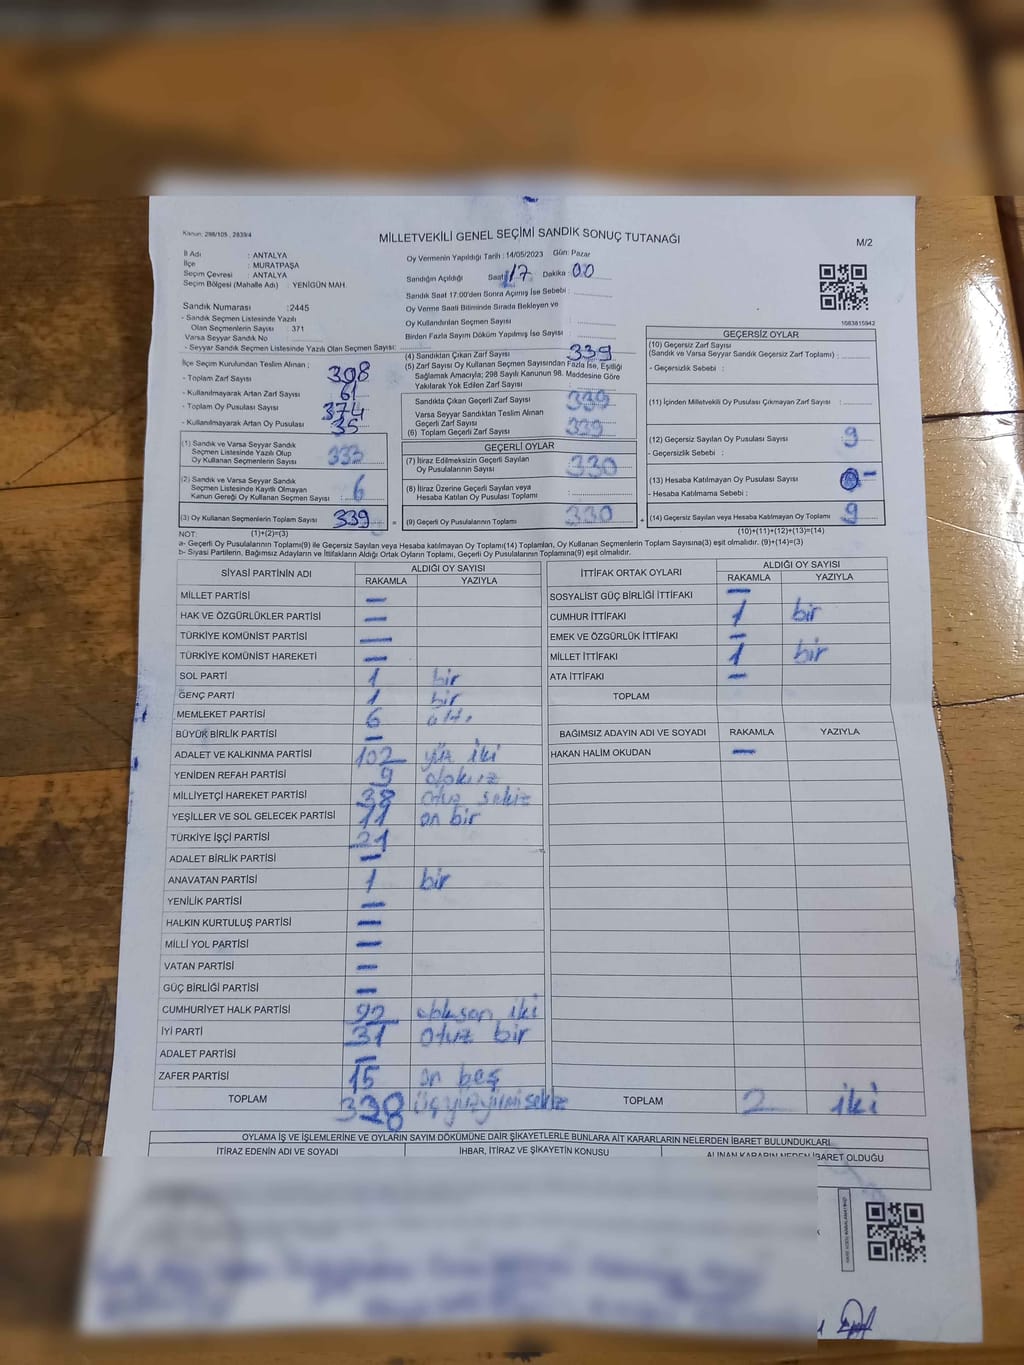 Kanun: 298/105 , 2839/4
MİLLETVEKİLİ GENEL SEÇİMİ SANDIK SONUÇ TUTANAĞI
M/2
İl Adı : ANTALYA
İlçe : MURATPAŞA
Seçim Çevresi : ANTALYA
Seçim Bölgesi (Mahalle Adı) : YENİGÜN MAH.
Sandık Numarası :2445
- Sandık Seçmen Listesinde Yazılı
Olan Seçmenlerin Sayısı : 371
Varsa Seyyar Sandık No
- Seyyar Sandık Seçmen Listesinde Yazılı Olan Seçmen Sayısı:
Oy Vermenin Yapıldığı Tarih : 14/05/2023 Gün: Pazar
Sandığın Açıldığı Saat: 17 Dakika : 00
Sandık Saat 17.00'den Sonra Açılmış İse Sebebi :
Oy Verme Saati Bitiminde Sırada Bekleyen ve
Oy Kullandırılan Seçmen Sayısı :
Birden Fazla Sayım Döküm Yapılmış İse Sayısı :
1083815942
İlçe Seçim Kurulundan Teslim Alınan ;
- Toplam Zarf Sayısı 398
- Kullanılmayarak Artan Zarf Sayısı 61
- Toplam Oy Pusulası Sayısı 374
- Kullanılmayarak Artan Oy Pusulası 35
(1) Sandık ve Varsa Seyyar Sandık
Seçmen Listesinde Yazılı Olup
Oy Kullanan Seçmenlerin Sayısı 333
(2) Sandık ve Varsa Seyyar Sandık
Seçmen Listesinde Kayıtlı Olmayan
Kanun Gereği Oy Kullanan Seçmen Sayısı : 6
(3) Oy Kullanan Seçmenlerin Toplam Sayısı 339 =
(1)+(2)=(3)
(4) Sandıktan Çıkan Zarf Sayısı 339
(5) Zarf Sayısı Oy Kullanan Seçmen Sayısından Fazla İse, Eşitliği
Sağlamak Amacıyla; 298 Sayılı Kanunun 98. Maddesine Göre
Yakılarak Yok Edilen Zarf Sayısı :
Sandıkta Çıkan Geçerli Zarf Sayısı 339
Varsa Seyyar Sandıktan Teslim Alınan
Geçerli Zarf Sayısı
(6) Toplam Geçerli Zarf Sayısı 339
GEÇERLİ OYLAR
(7) İtiraz Edilmeksizin Geçerli Sayılan
Oy Pusulalarının Sayısı 330
(8) İtiraz Üzerine Geçerli Sayılan veya
Hesaba Katılan Oy Pusulası Toplamı :
(9) Geçerli Oy Pusulalarının Toplamı 330 +
GEÇERSİZ OYLAR
(10) Geçersiz Zarf Sayısı
(Sandık ve Varsa Seyyar Sandık Geçersiz Zarf Toplamı) :
- Geçersizlik Sebebi :
(11) İçinden Milletvekili Oy Pusulası Çıkmayan Zarf Sayısı :
(12) Geçersiz Sayılan Oy Pusulası Sayısı 9
- Geçersizlik Sebebi :
(13) Hesaba Katılmayan Oy Pusulası Sayısı -
- Hesaba Katılmama Sebebi :
(14) Geçersiz Sayılan veya Hesaba Katılmayan Oy Toplamı 9
(10)+(11)+(12)+(13)=(14)
NOT:
a- Geçerli Oy Pusulalarının Toplamı(9) ile Geçersiz Sayılan veya Hesaba katılmayan Oy Toplamı(14) Toplamları, Oy Kullanan Seçmenlerin Toplam Sayısına(3) eşit olmalıdır. (9)+(14)=(3)
b- Siyasi Partilerin, Bağımsız Adayların ve İttifakların Aldığı Oy Ortak Oyların Toplamı, Geçerli Oy Pusulalarının Toplamına(9) eşit olmalıdır.
SİYASİ PARTİNİN ADI ALDIĞI OY SAYISI
RAKAMLA YAZIYLA
MİLLET PARTİSİ -
HAK VE ÖZGÜRLÜKLER PARTİSİ -
TÜRKİYE KOMÜNİST PARTİSİ -
TÜRKİYE KOMÜNİST HAREKETİ -
SOL PARTİ 1 bir
GENÇ PARTİ 1 bir
MEMLEKET PARTİSİ 6 altı
BÜYÜK BİRLİK PARTİSİ -
ADALET VE KALKINMA PARTİSİ 102 yüz iki
YENİDEN REFAH PARTİSİ 9 dokuz
MİLLİYETÇİ HAREKET PARTİSİ 38 otuz sekiz
YEŞİLLER VE SOL GELECEK PARTİSİ 11 on bir
TÜRKİYE İŞÇİ PARTİSİ 21
ADALET BİRLİK PARTİSİ -
ANAVATAN PARTİSİ 1 bir
YENİLİK PARTİSİ -
HALKIN KURTULUŞ PARTİSİ -
MİLLİ YOL PARTİSİ -
VATAN PARTİSİ -
GÜÇ BİRLİĞİ PARTİSİ -
CUMHURİYET HALK PARTİSİ 92 doksan iki
İYİ PARTİ 31 otuz bir
ADALET PARTİSİ -
ZAFER PARTİSİ 15 on beş
TOPLAM 328 üçyüzyirmisekiz
İTTİFAK ORTAK OYLARI ALDIĞI OY SAYISI
RAKAMLA YAZIYLA
SOSYALİST GÜÇ BİRLİĞİ İTTİFAKI -
CUMHUR İTTİFAKI 1 bir
EMEK VE ÖZGÜRLÜK İTTİFAKI -
MİLLET İTTİFAKI 1 bir
ATA İTTİFAKI -
TOPLAM
BAĞIMSIZ ADAYIN ADI VE SOYADI RAKAMLA YAZIYLA
HAKAN HALİM OKUDAN -
TOPLAM 2 iki
OYLAMA İŞ VE İŞLEMLERİNE VE OYLARIN SAYIM DÖKÜMÜNE DAİR ŞİKAYETLERLE BUNLARA AİT KARARLARIN NELERDEN İBARET BULUNDUKLARI
İTİRAZ EDENİN ADI VE SOYADI İHBAR, İTİRAZ VE ŞİKAYETİN KONUSU ALINAN KARARIN NEDEN İBARET OLDUĞU